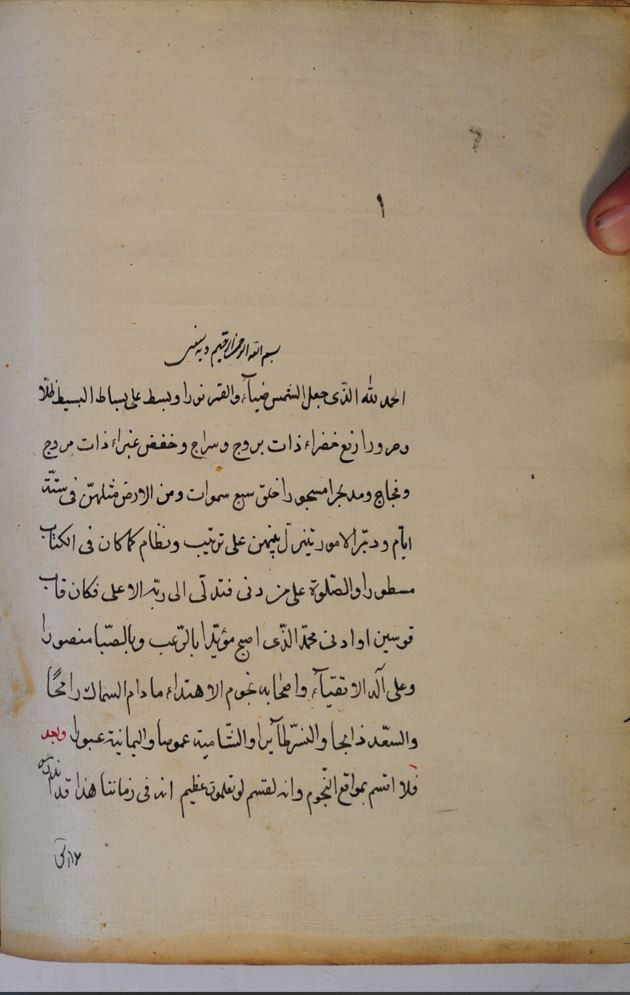 ١
بسم الله الرحمن الرحيم وبه نستعين
الحمد لله الذى جعل الشمس ضياء والقمر نورا وبسط على بساط البسيط ظلّا
وحرورا رفع خضراء ذات بروج وسراج وخفض غبراء ذات مروج
وفجاج ومد بحرا مسجورا خلق سبع سموات ومن الارض مثلهنّ فى ستّة
ايّام ودبّر الامور تتنزل بينهن على ترتيب ونظام كما كان فى الكتاب
مسطورا والصّلوة على من دنى فتدلّى الى ربّه الاعلى فكان قاب
قوسين او ادنى محمّد الذّى اصبح مؤيّدا بالرّعب وبالصّبا منصورا
وعلى آله الاتقيآء واصحابه نجوم الاهتداء ما دام السماك رامحًا
والسّعد ذابحا والنسر طآيرا والشّامية غموصا واليمانية عبورا وبعد
فلا اقسم بمواقع النّجوم وانه لقسم لو تعلمون عظيم انه فى زماننا هذا قد